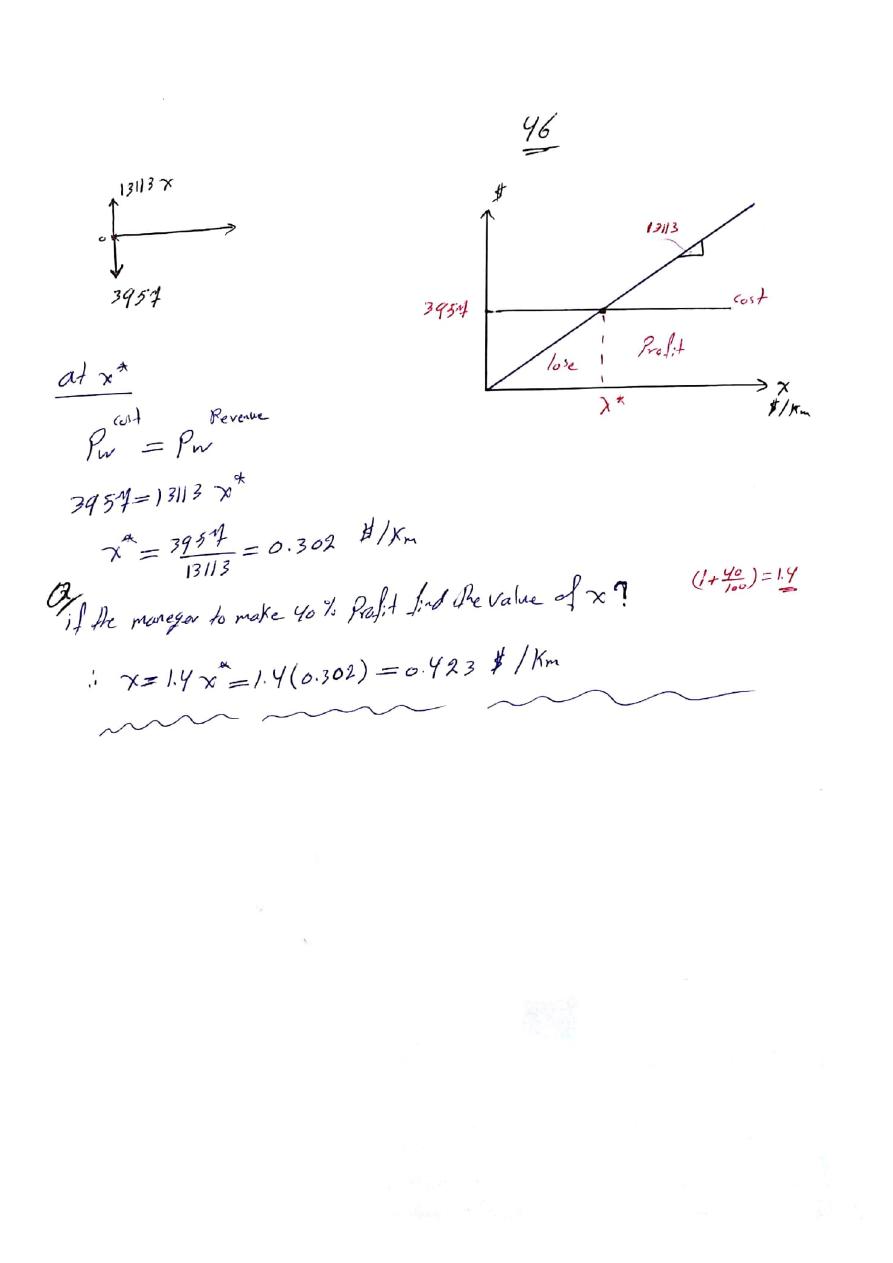 46
13113 x
0
3957
$
13113
3957
cost
lose
Profit
x
$/Km
x*
at x*
Pw cost = Pw Revenue
3957 = 13113 x*
x* = 3957/13113 = 0.302 $/Km
Q/ if the maneger to make 40 % Profit find the value of x?
(1+40/100) = 1.4
∴ x = 1.4 x* = 1.4(0.302) = 0.423 $/Km